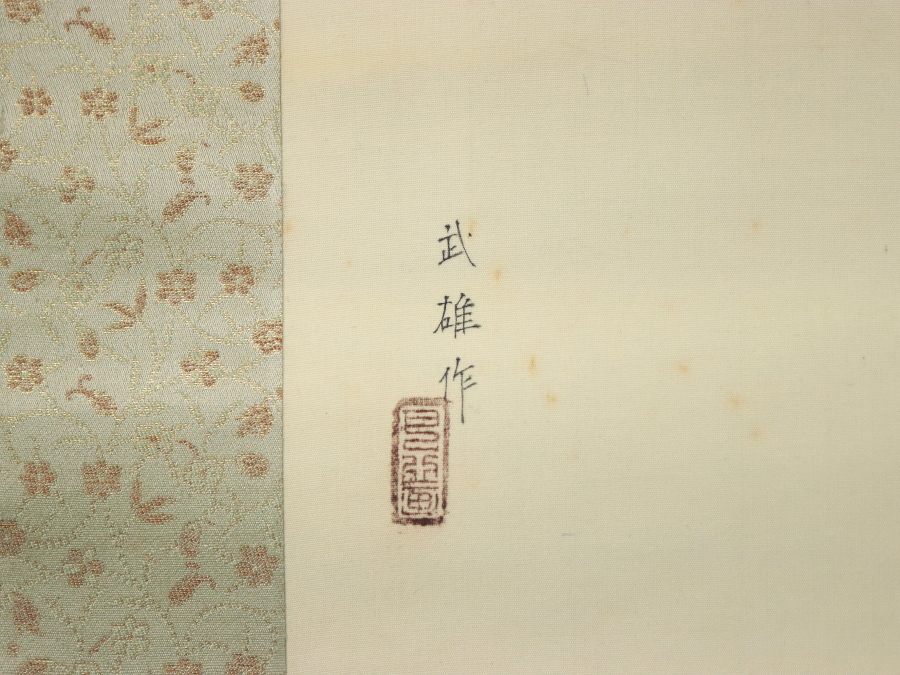 武雄作